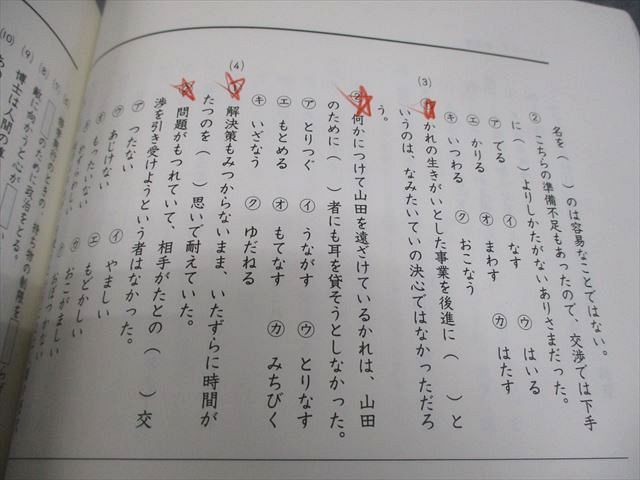 名を（　）のは容易なことではない。
② こちらの準備不足もあったので、交渉では下手
に（　）よりしかたがないありさまだった。
㋐ でる　㋑ なす　㋒ はいる
㋓ かりる　㋔ まわす　㋕ はたす
㋖ いつわる　㋗ おこなう
(3)
かれの生きがいとした事業を後進に（　）と
いうのは、なみたいていの決心ではなかっただろ
う。
② 何かにつけて山田を遠ざけているかれは、山田
のために（　）者にも耳を貸そうとしなかった。
㋐ とりつぐ　㋑ うながす　㋒ とりなす
㋓ もとめる　㋔ もてなす　㋕ みちびく
㋖ いざなう　㋗ ゆだねる
(4)
① 解決策もみつからないまま、いたずらに時間が
たつのを（　）思いで耐えていた。
問題がもつれていて、相手がたとの（　）交
渉を引き受けようという者はなかった。
㋐ つたない　㋑ やましい
㋒ あじけない　㋓ もどかしい
㋔ もったいない　おこがましい
おぼつかない
(8)
のために政治をとる。
(9)
敵に向かうと心が
(10)
博士は人間の尊